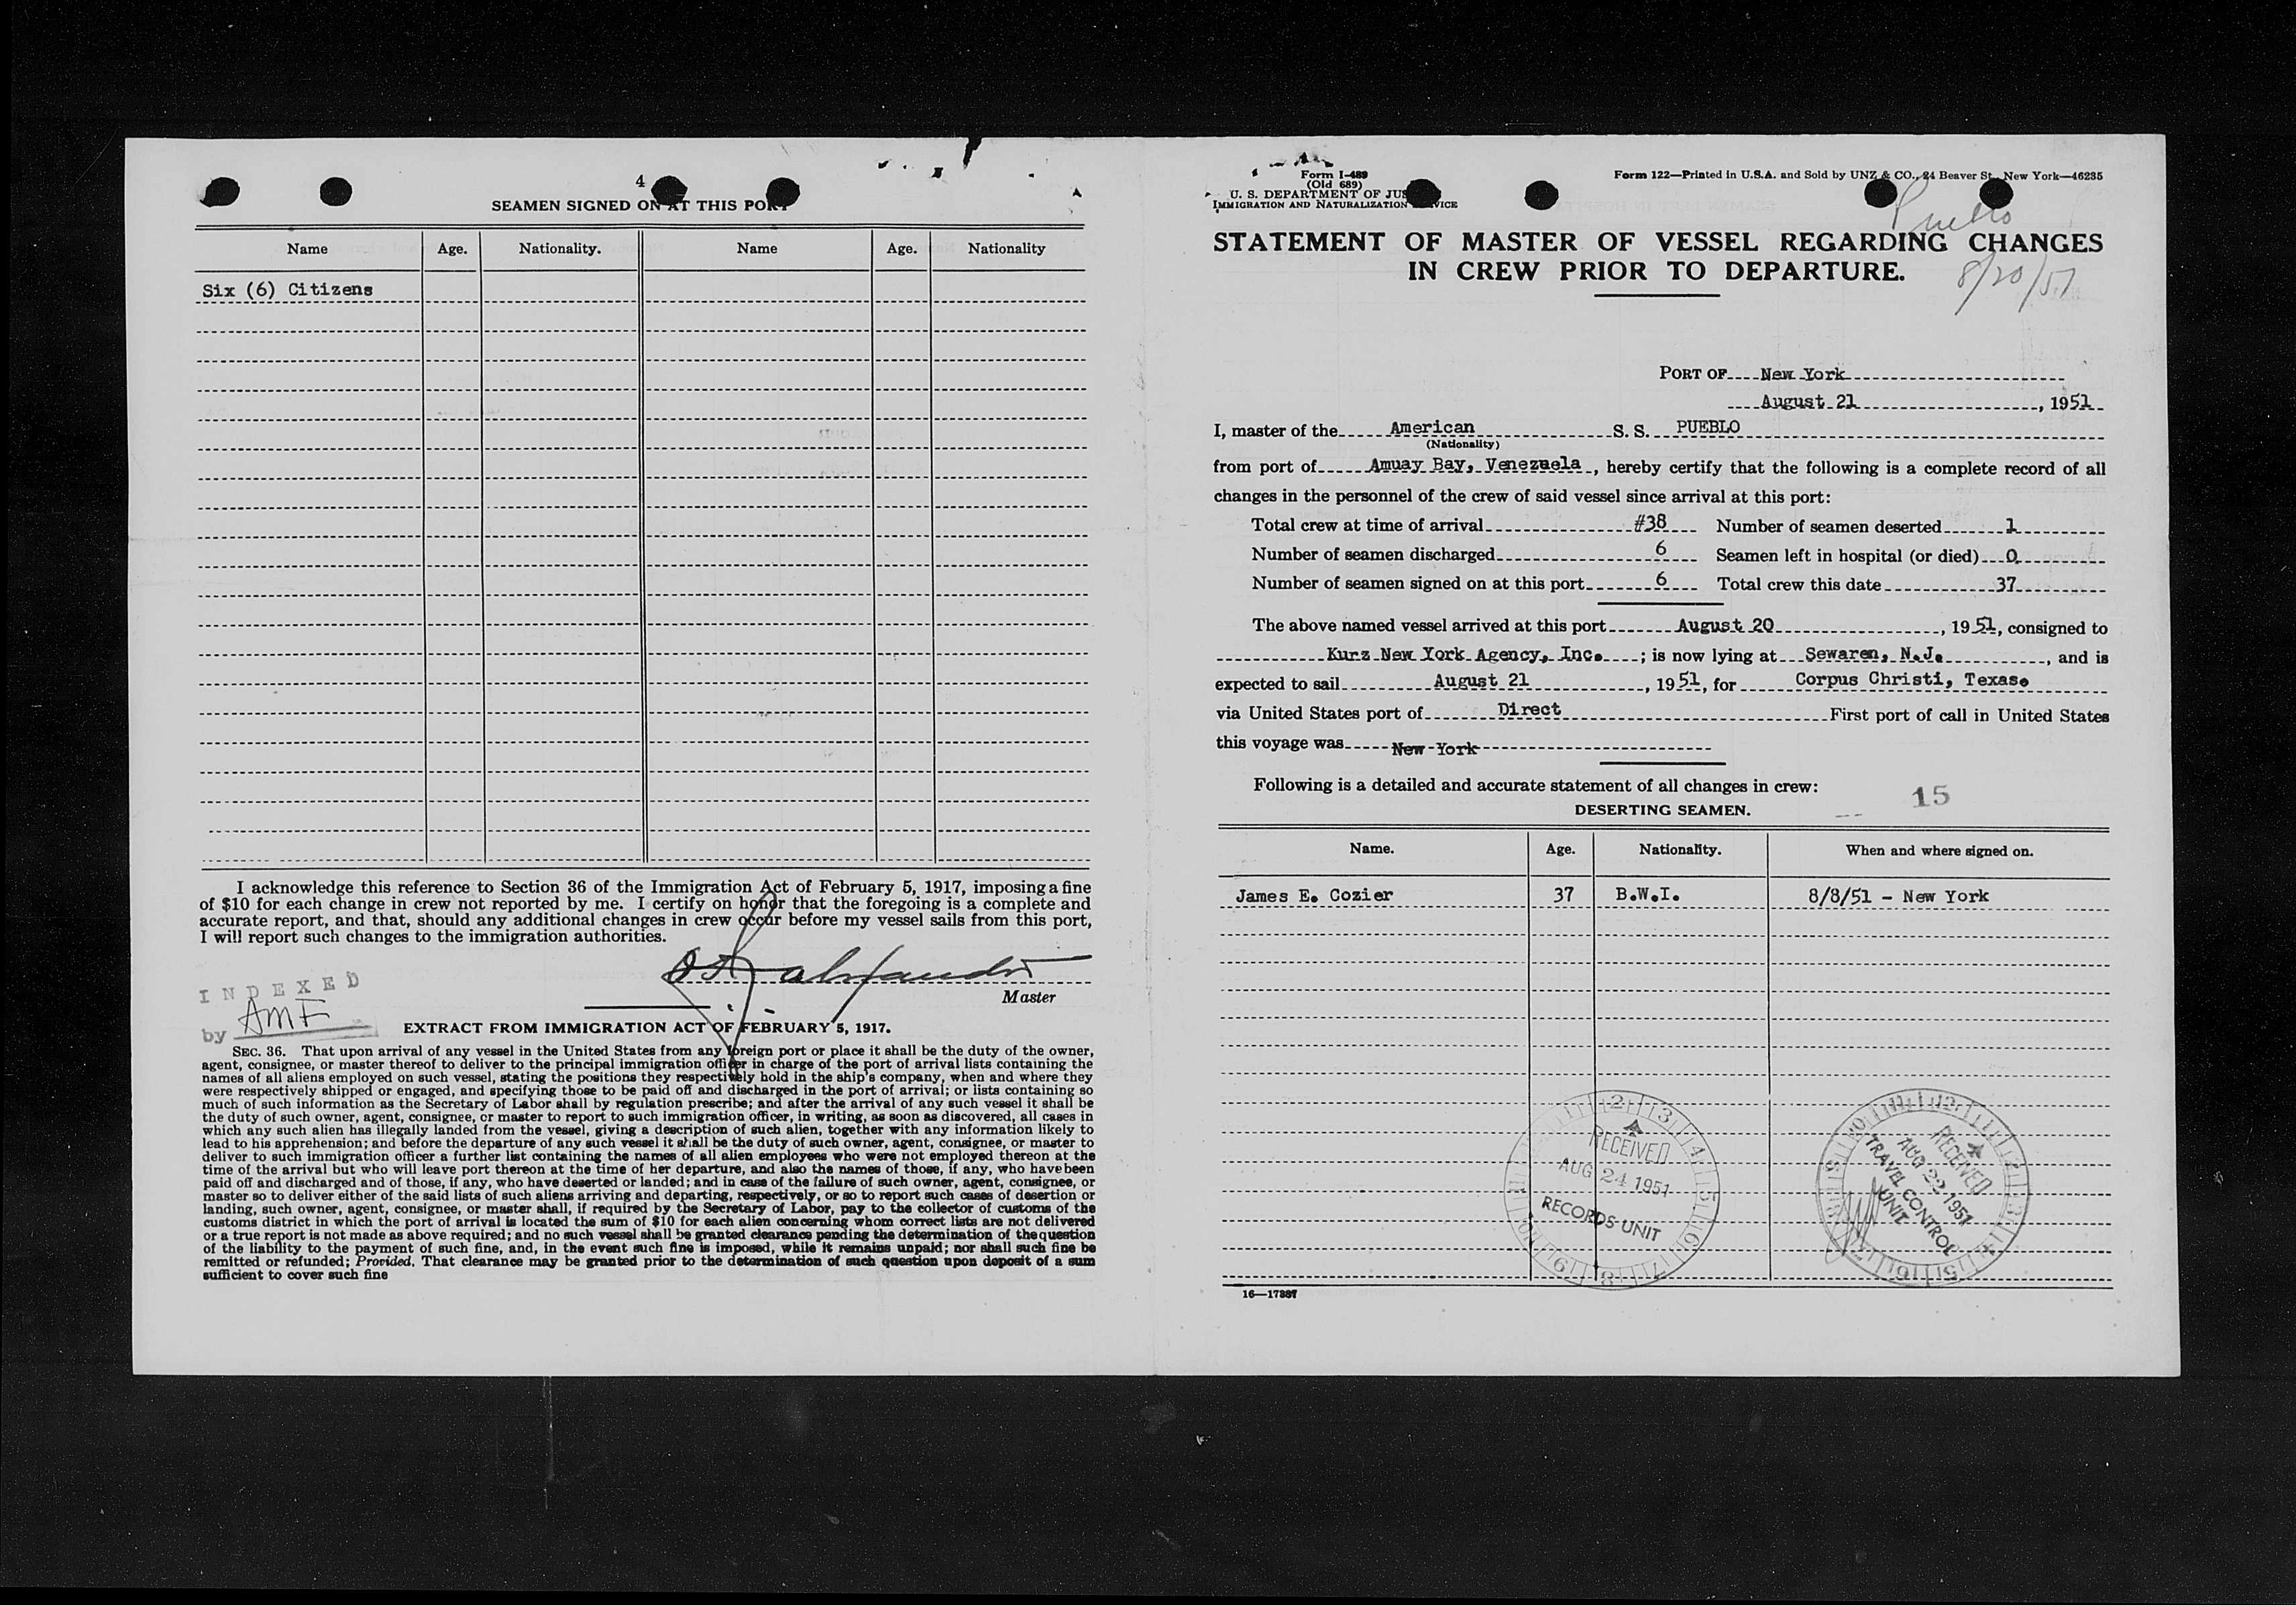 4
SEAMEN SIGNED ON AT THIS PORT
Name Age. Nationality. Name Age. Nationality
Six (6) Citizens
I acknowledge this reference to Section 36 of the Immigration Act of February 5, 1917, imposing a fine
of $10 for each change in crew not reported by me. I certify on honor that the foregoing is a complete and
accurate report, and that, should any additional changes in crew occur before my vessel sails from this port,
I will report such changes to the immigration authorities.
Master
INDEXED
by AMF
EXTRACT FROM IMMIGRATION ACT OF FEBRUARY 5, 1917.
SEC. 36. That upon arrival of any vessel in the United States from any foreign port or place it shall be the duty of the owner,
agent, consignee, or master thereof to deliver to the principal immigration officer in charge of the port of arrival lists containing the
names of all aliens employed on such vessel, stating the positions they respectively hold in the ship's company, when and where they
were respectively shipped or engaged, and specifying those to be paid off and discharged in the port of arrival; or lists containing so
much of such information as the Secretary of Labor shall by regulation prescribe; and after the arrival of any such vessel it shall be
the duty of such owner, agent, consignee, or master to report to such immigration officer, in writing, as soon as discovered, all cases in
which any such alien has illegally landed from the vessel, giving a description of such alien, together with any information likely to
lead to his apprehension; and before the departure of any such vessel it shall be the duty of such owner, agent, consignee, or master to
deliver to such immigration officer a further list containing the names of all alien employees who were not employed thereon at the
time of the arrival but who will leave port thereon at the time of her departure, and also the names of those, if any, who have been
paid off and discharged and of those, if any, who have deserted or landed; and in case of the failure of such owner, agent, consignee, or
master so to deliver either of the said lists of such aliens arriving and departing, respectively, or so to report such cases of desertion or
landing, such owner, agent, consignee, or master shall, if required by the Secretary of Labor, pay to the collector of customs of the
customs district in which the port of arrival is located the sum of $10 for each alien concerning whom correct lists are not delivered
or a true report is not made as above required; and no such vessel shall be granted clearance pending the determination of the question
of the liability to the payment of such fine, and, in the event such fine is imposed, while it remains unpaid; nor shall such fine be
remitted or refunded; Provided, That clearance may be granted prior to the determination of such question upon deposit of a sum
sufficient to cover such fine
Form I-489
(Old 689)
U. S. DEPARTMENT OF JUS
IMMIGRATION AND NATURALIZATION SERVICE
Form 122—Printed in U.S.A. and Sold by UNZ & CO., 24 Beaver St., New York—46235
Pueblo
8/20/51
STATEMENT OF MASTER OF VESSEL REGARDING CHANGES
IN CREW PRIOR TO DEPARTURE.
PORT OF New York
August 21, 1951
I, master of the American S. S. PUEBLO
(Nationality)
from port of Amuay Bay, Venezuela, hereby certify that the following is a complete record of all
changes in the personnel of the crew of said vessel since arrival at this port:
Total crew at time of arrival #38 Number of seamen deserted 1
Number of seamen discharged 6 Seamen left in hospital (or died) 0
Number of seamen signed on at this port 6 Total crew this date 37
The above named vessel arrived at this port August 20, 1951, consigned to
Kurz New York Agency, Inc. ; is now lying at Sewaren, N.J. , and is
expected to sail August 21, 1951, for Corpus Christi, Texas.
via United States port of Direct First port of call in United States
this voyage was New York
Following is a detailed and accurate statement of all changes in crew:
15
DESERTING SEAMEN.
Name. Age. Nationality. When and where signed on.
James E. Cozier 37 B.W.I. 8/8/51 - New York
RECEIVED
AUG 24 1951
RECORDS UNIT
RECEIVED
AUG 22 1951
TRAVEL CONTROL
UNIT
16—17387